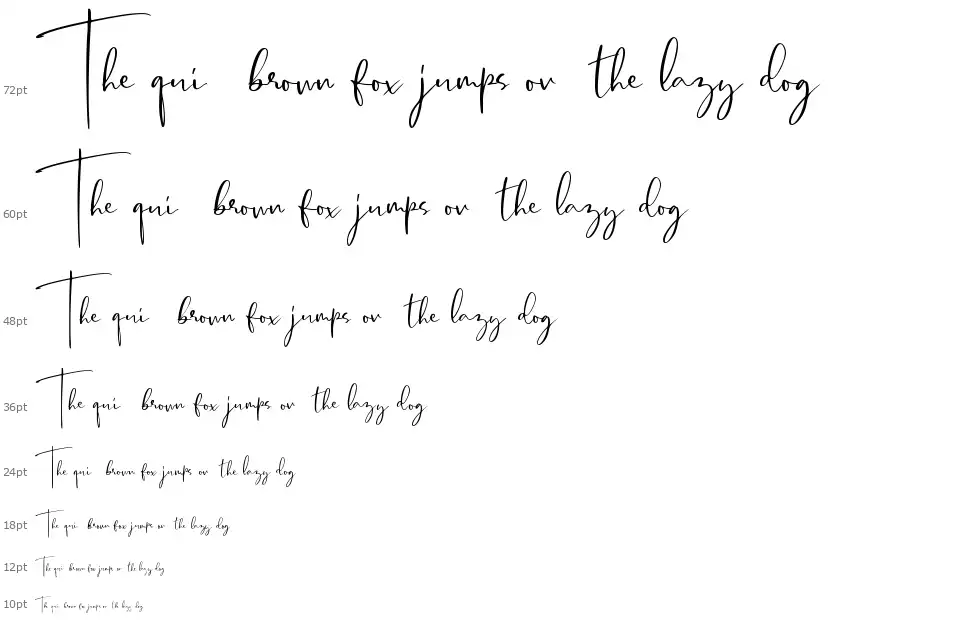 72pt The qui brown fox jumps ov the lazy dog
60pt The qui brown fox jumps ov the lazy dog
48pt The qui brown fox jumps ov the lazy dog
36pt The qui brown fox jumps ov the lazy dog
24pt The qui brown fox jumps ov the lazy dog
18pt The qui brown fox jumps ov the lazy dog
12pt The qui brown fox jumps ov the lazy dog
10pt The qui brown fox jumps ov the lazy dog